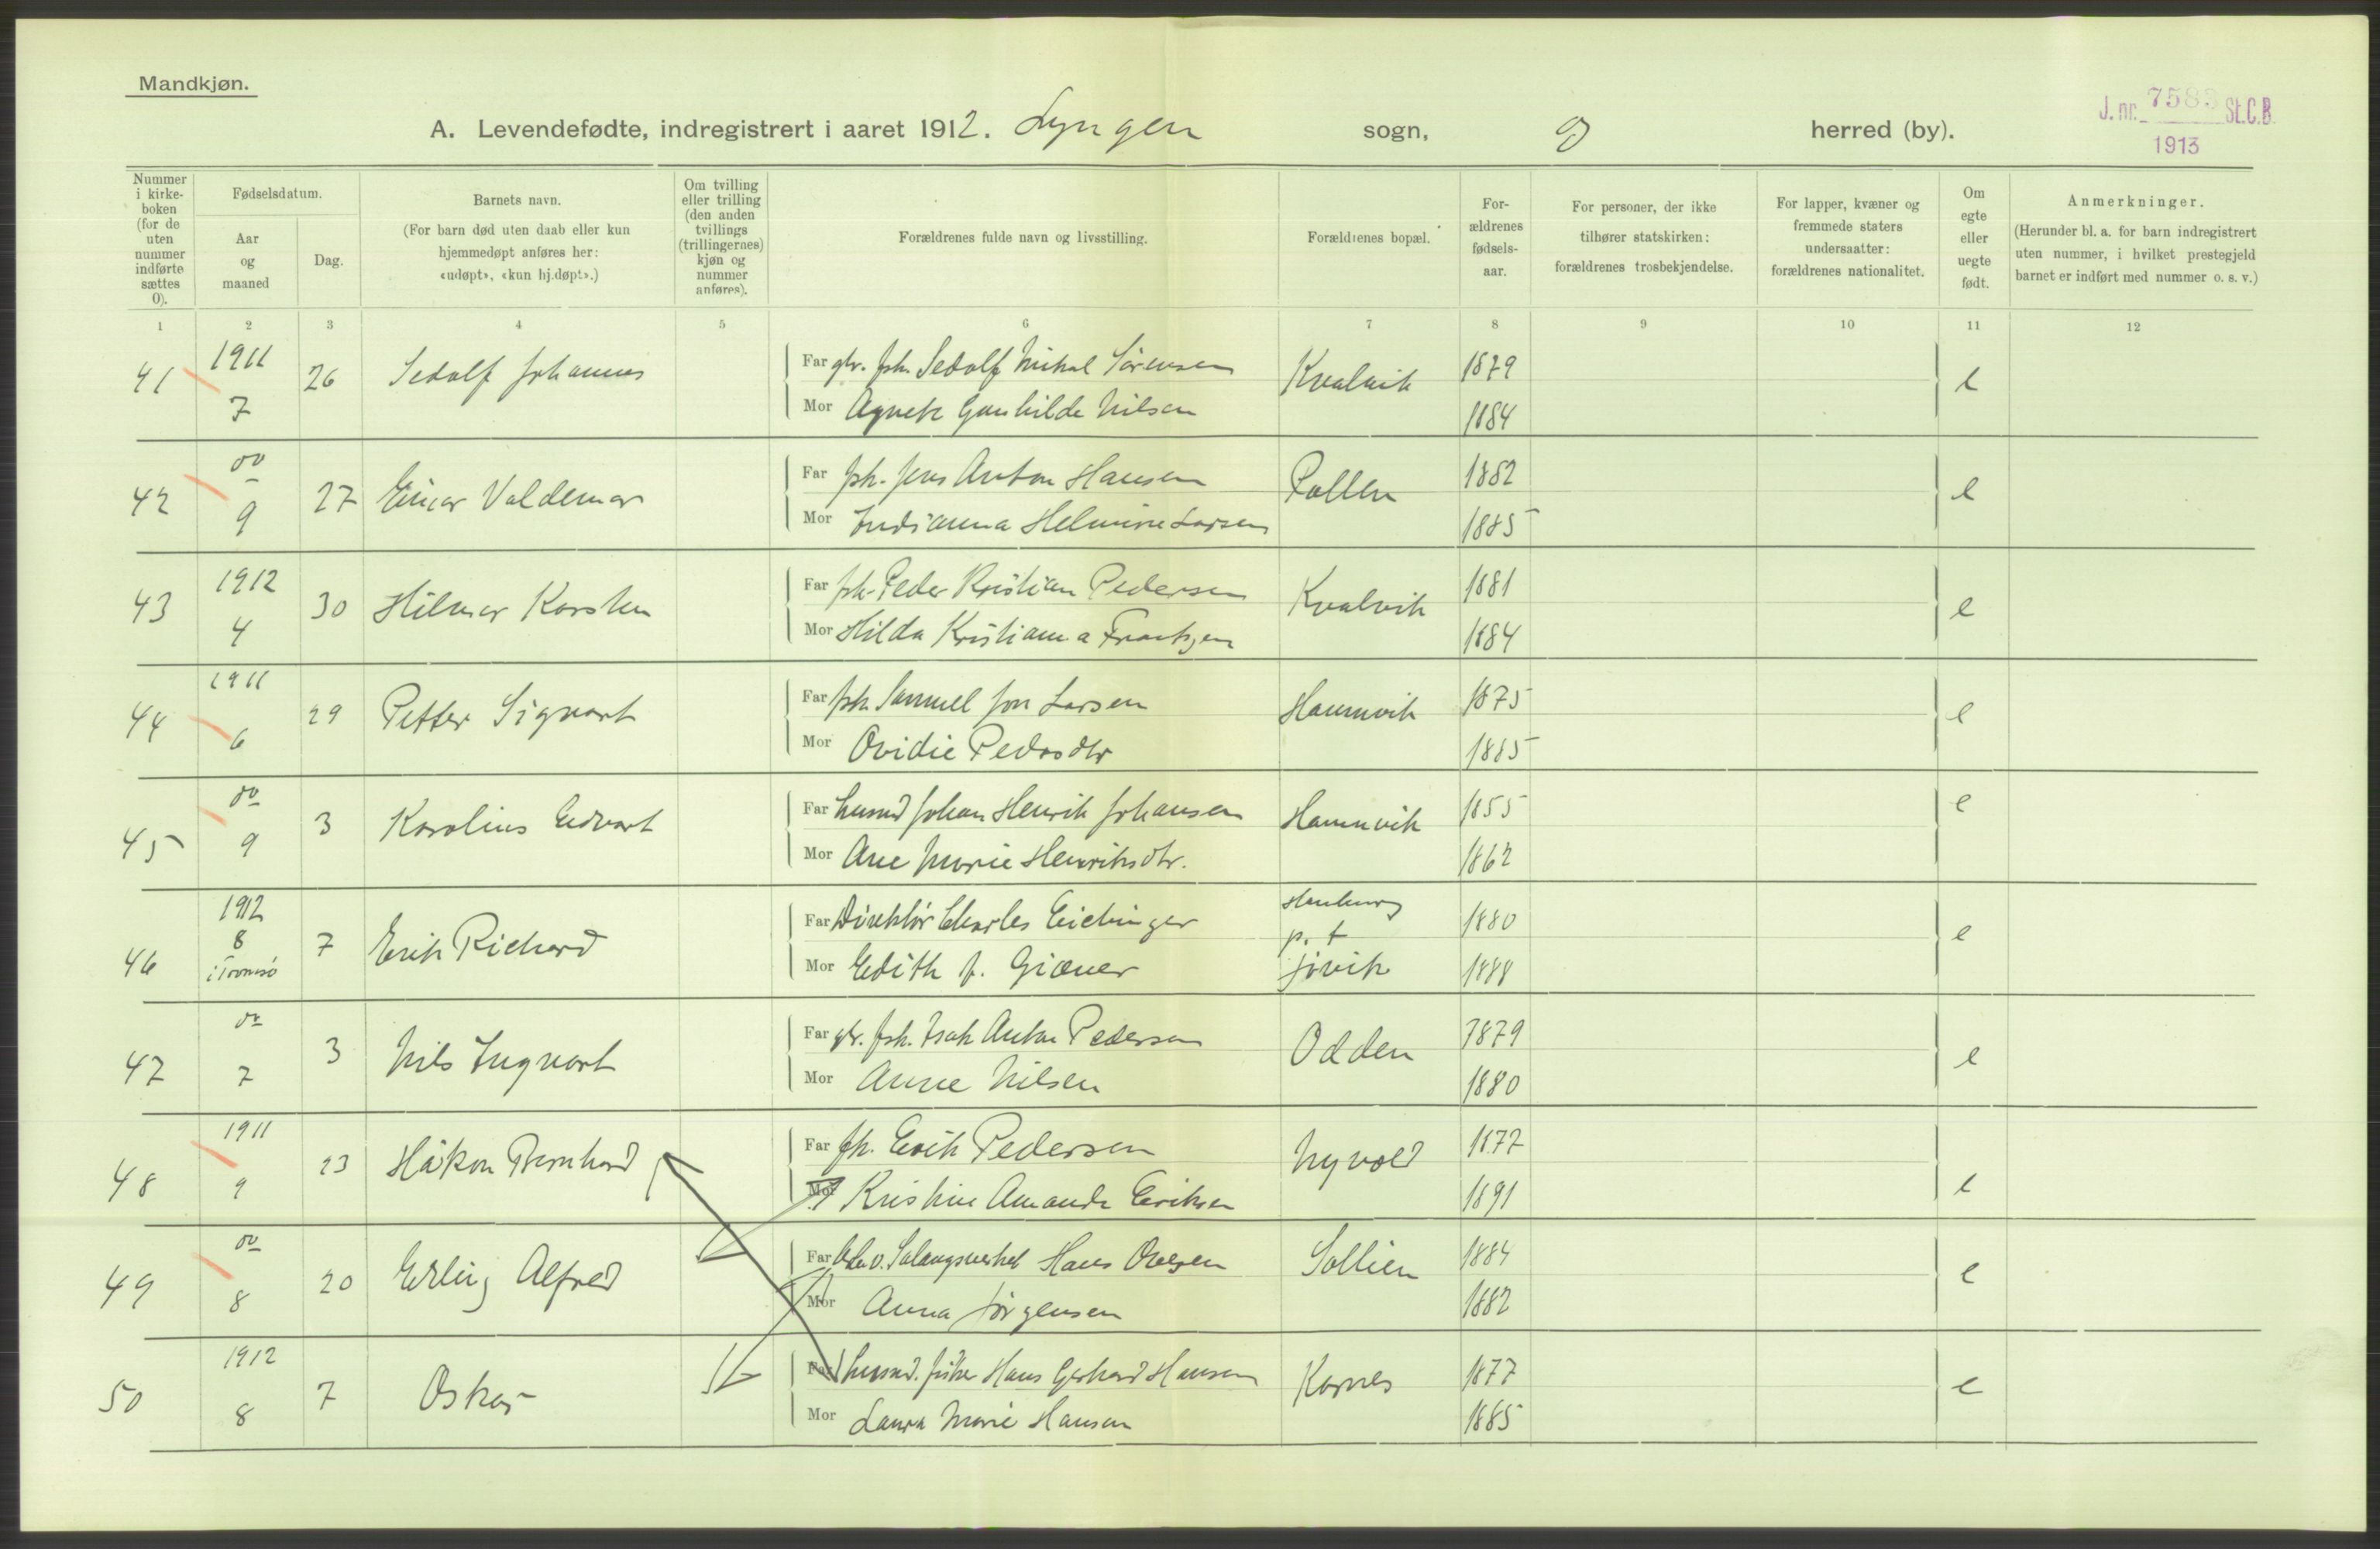 Mandkjøn.
A. Levendefødte, indregistrert i aaret 1912. Lyngen sogn, herred (by).
J. nr. 7583 St.C.B.
1913
Nummer i kirke-boken (for de uten nummer indførte sættes 0).
Fødselsdatum.
Aar og maaned
Dag.
Barnets navn.
(For barn død uten daab eller kun hjemmedøpt anføres her: «udøpt», «kun hj.døpt».)
Om tvilling eller trilling (den anden tvillings (trillingernes) kjøn og nummer anføres).
Forældrenes fulde navn og livsstilling.
Forældrenes bopæl.
For-ældrenes fødsels-aar.
For personer, der ikke tilhører statskirken: forældrenes trosbekjendelse.
For lapper, kvæner og fremmede staters undersaatter: forældrenes nationalitet.
Om egte eller uegte født.
Anmerkninger.
(Herunder bl. a. for barn indregistrert uten nummer, i hvilket prestegjeld barnet er indført med nummer o. s. v.)
1 2 3 4 5 6 7 8 9 10 11 12
41 1911 7 26 Sedolf Johannes Far gbr. fsk. Sedolf Mikal Sörensen Kvalvik 1879 e
Mor Agnete Gunhilde Nilsen 1884
42 do 9 27 Einar Valdemar Far fsk. Jens Anton Hansen Pollen 1882 e
Mor Indianna Helmine Larsen 1885
43 1912 4 30 Hilmar Karsten Far fsk. Peder Kristian Pedersen Kvalvik 1881 e
Mor Hilda Kristianna Frantzen 1884
44 1911 6 29 Petter Sigvart Far fsk. Samuel Jon Larsen Hamnvik 1875 e
Mor Ovidie Pedersdtr 1885
45 do 9 3 Karolius Edvart Far husmd Johan Henrik Johansen Hamnvik 1855 e
Mor Ane Marie Henriksdtr. 1862
46 1912 8 i Tromsö 7 Erik Richard Far Direktör Charles Eichinger Hamburg p. t Jövik 1880 e
Mor Edith J. Giæver 1888
47 do 7 3 Nils Ingvart Far gbr. fsk. Isak Anton Pedersen Odden 1879 e
Mor Anne Nilsen 1880
48 1911 9 23 Håkon Bernhard Far fsk. Erik Pedersen Nyvold 1877 e
Mor Kristine Amanda Eriksen 1891
49 do 8 20 Erling Alfred Far v. Salangsverket Hans Olsen Sollien 1884 e
Mor Anna Jörgensen 1882
50 1912 8 7 Oskar Far husmd. fisker Hans Gerhard Hansen Karnes 1877 e
Mor Laura Marie Hansen 1885